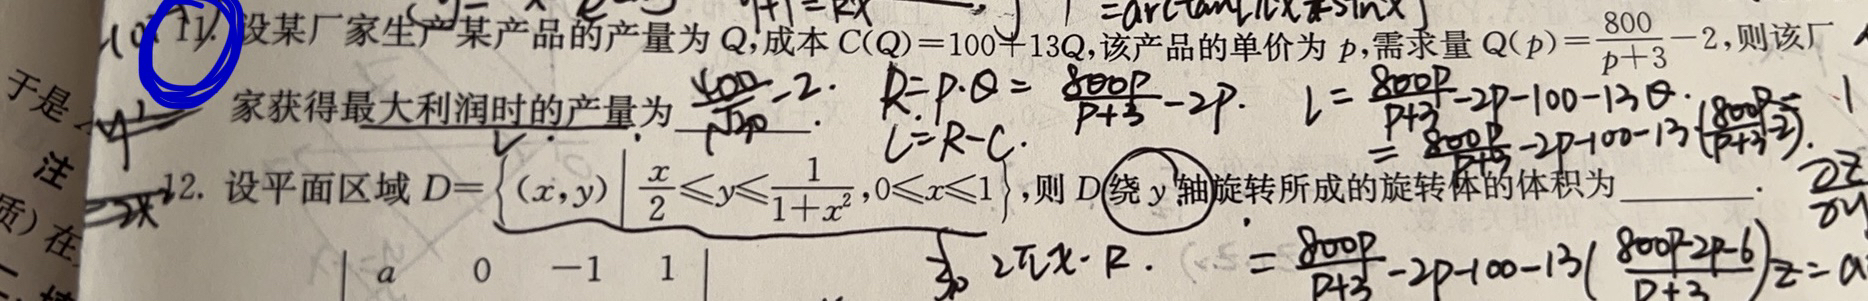 y+1=Rx
=arctan[
11. 设某厂家生产某产品的产量为 Q,成本 C(Q)=100+13Q,该产品的单价为 p,需求量 Q(p)=800/(p+3)-2,则该厂
家获得最大利润时的产量为
R=P·Q=800P/(P+3)-2P. L=800P/(P+3)-2P-100-13Q.
L=R-C. =800P/(P+3)-2P-100-13(800P/(P+3)-2).
于是
注
质)在
12. 设平面区域 D={(x,y)|x/2≤y≤1/(1+x²),0≤x≤1},则 D 绕 y 轴旋转所成的旋转体的体积为______.
2πx·R. =800P/(P+3)-2P-100-13(800P-2P-6/(P+3))
a 0 -1 1